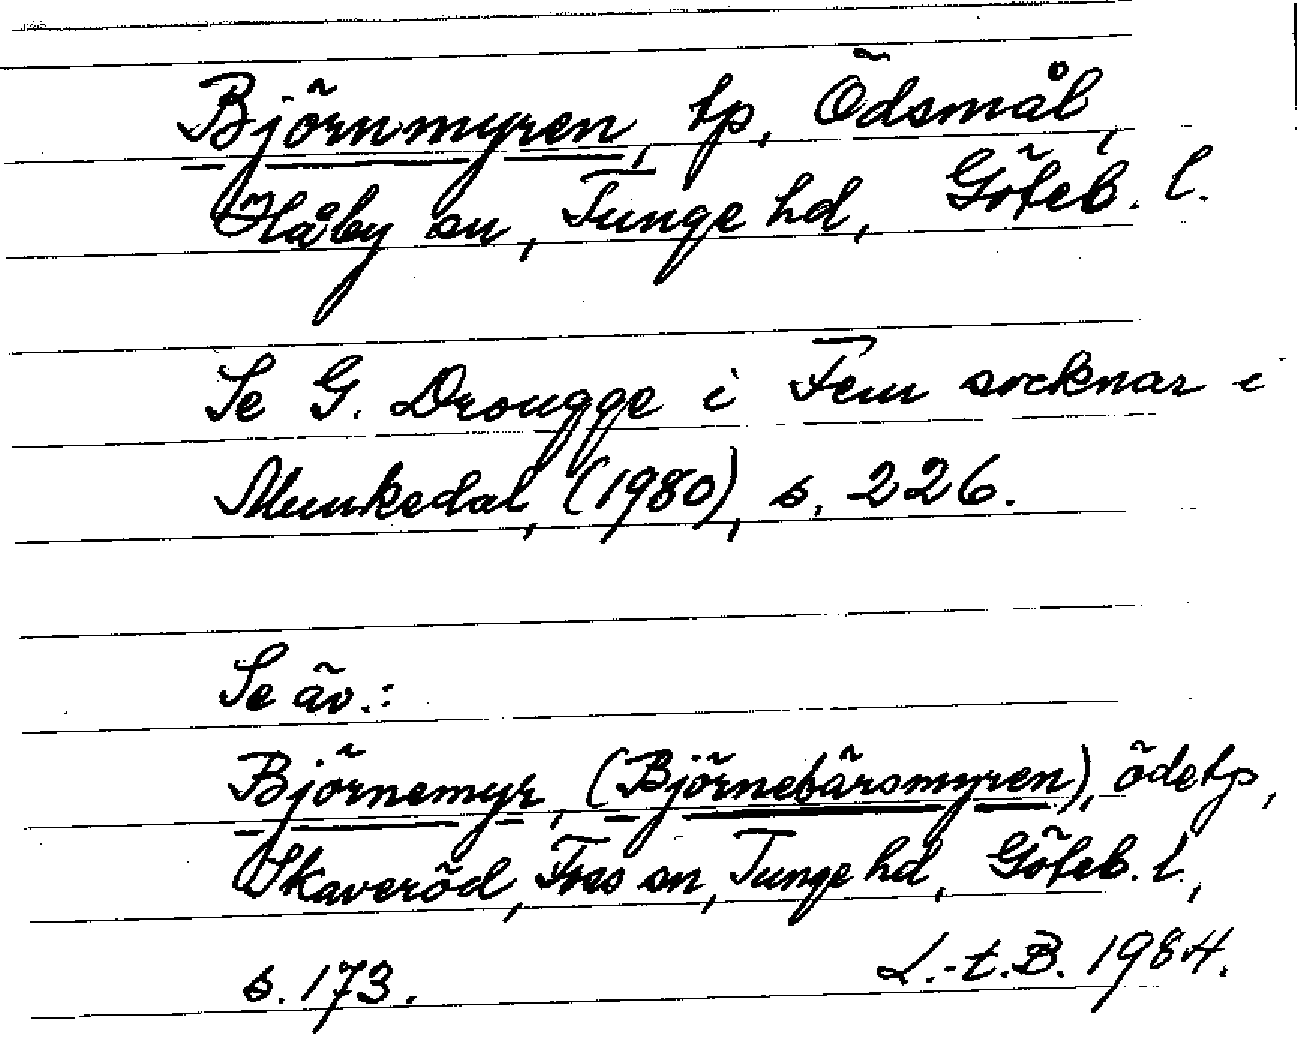 Björnmyren, tp, Ödsmål,
Håby sn, Tunge hd, Göteb. l.
Se G. Drougge i Fem socknar i
Munkedal, (1980), s. 226.
Se äv.:
Björnemyr, (Björnebärsmyren), ödetp,
Skaveröd, Foss sn, Tunge hd, Göteb. l.,
s. 173. L.-t.B. 1984.